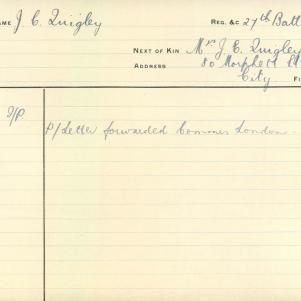 NAME J. C. Quigley REG. &C 27th Batt
NEXT OF KIN Mrs J. C. Quigley
ADDRESS 80 Morphett St
City. FI
I/P
P/Letter forwarded Commnr London